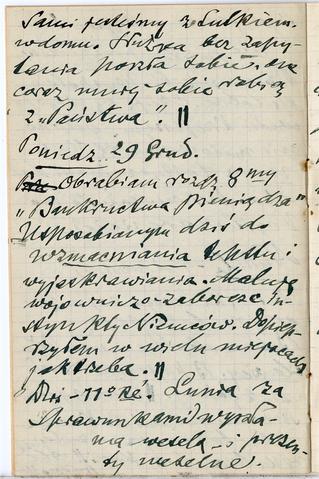 Sami jesteśmy z Lutkiem
w domu. Służąca bez zapy-
tania poszła sobie, one
coraz more sobie robią
z „Państwa”. ||
Poniedz. 29 Grud.
Obrabiam rozdz 8 my
„Bankructwa Pieniądza”
Usposobionym dziś do
wzmacniania tekstu i
wyjaskrawiania. Maluję
wojowniczo-zaborcze in-
stynkty Niemców. Dopie-
rzyłem w wielu miejscach
jak trzeba. ||
Dziś - 11° Re. Lunia za
sprawunkami wysła-
na wesela - i prezen-
ty weselne.